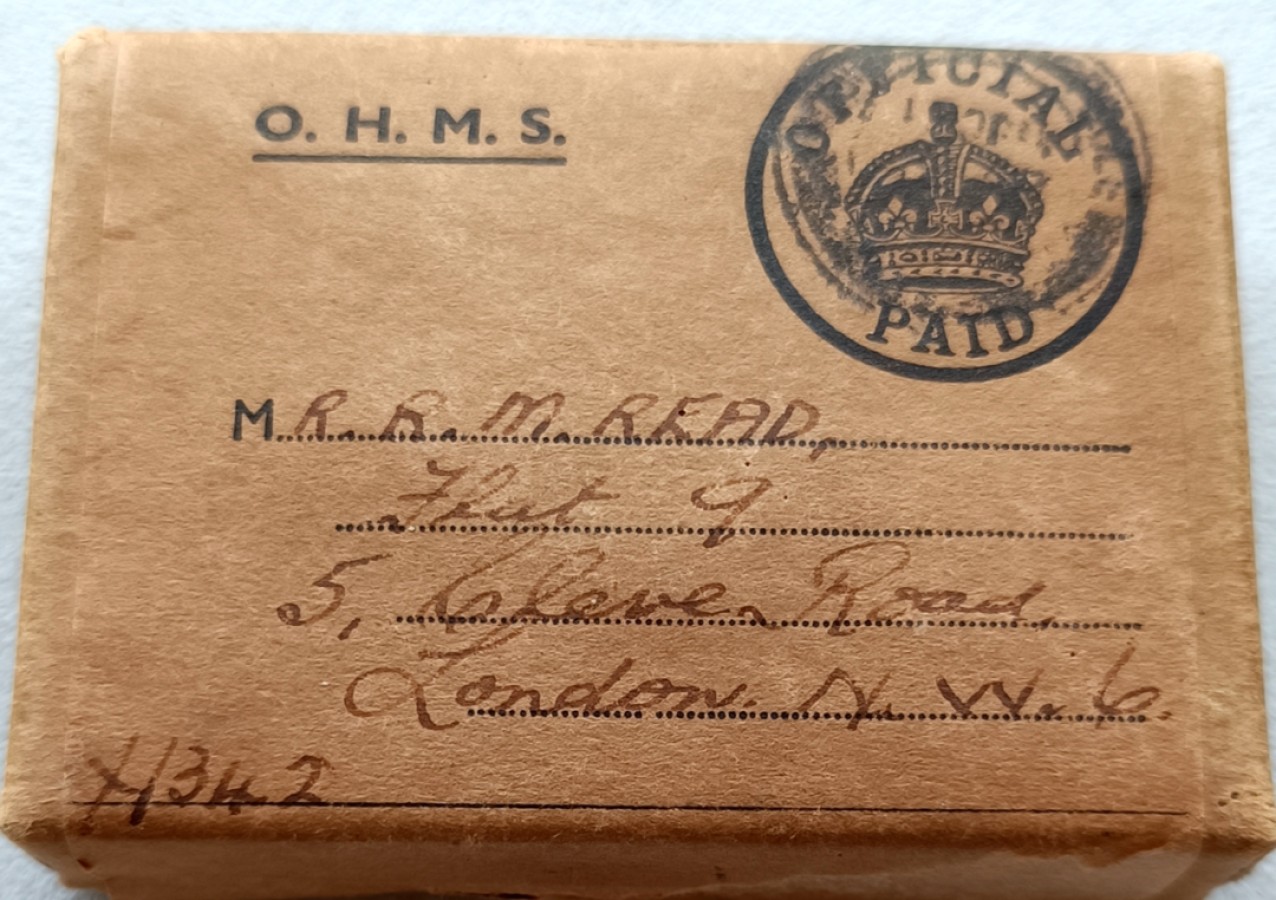 O. H. M. S.
OFFICIAL
PAID
MR. R. M. READ,
Flat 9
5, Cleve Road,
London. N. W. 6.